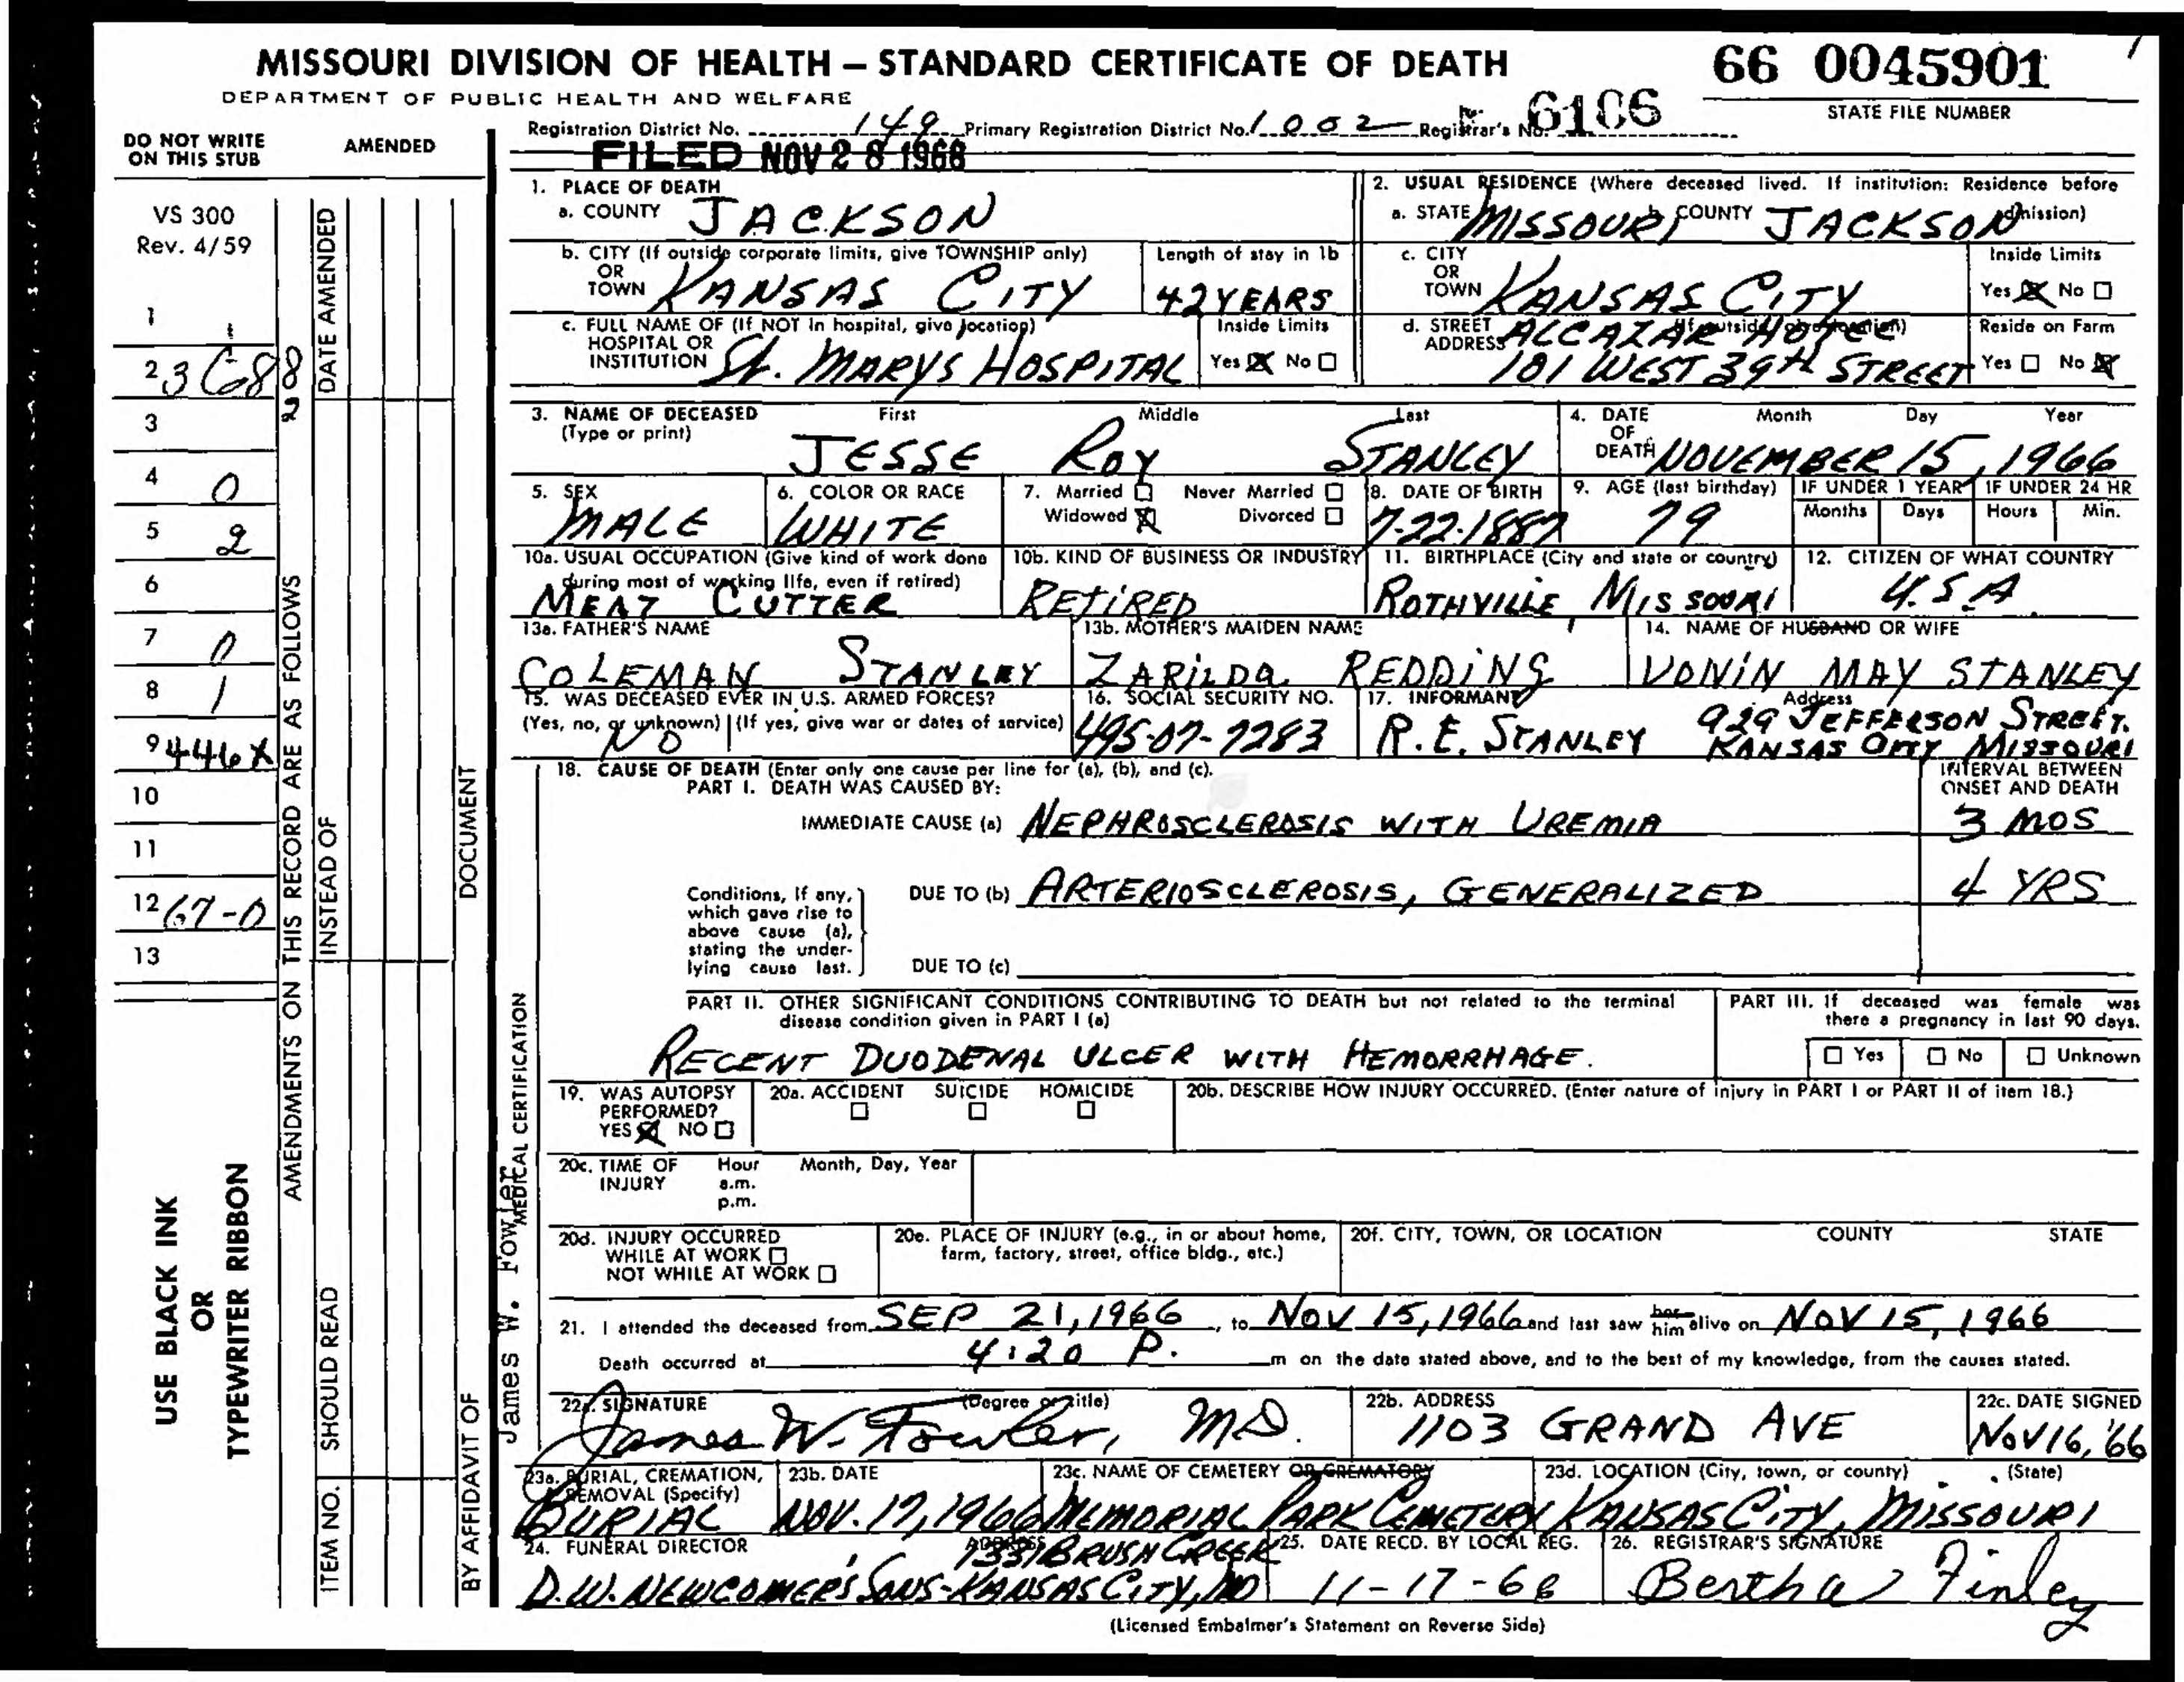 MISSOURI DIVISION OF HEALTH – STANDARD CERTIFICATE OF DEATH
DEPARTMENT OF PUBLIC HEALTH AND WELFARE
66 0045901
STATE FILE NUMBER
Registration District No. 149 Primary Registration District No. 1002 Registrar's No. 6106
FILED NOV 28 1966
DO NOT WRITE
ON THIS STUB
AMENDED
VS 300
Rev. 4/59
1
2 3688
3
4 0
5 2
6
7 0
8 1
9 446X
10
11
12 67-0
13
USE BLACK INK
OR
TYPEWRITER RIBBON
AMENDMENTS ON THIS RECORD ARE AS FOLLOWS
DATE AMENDED
INSTEAD OF
SHOULD READ
ITEM NO.
DOCUMENT
BY AFFIDAVIT OF
MEDICAL CERTIFICATION
James W. Fowler
1. PLACE OF DEATH
a. COUNTY JACKSON
b. CITY (If outside corporate limits, give TOWNSHIP only)
OR
TOWN KANSAS CITY
Length of stay in 1b
42 YEARS
c. FULL NAME OF (If NOT in hospital, give location)
HOSPITAL OR
INSTITUTION St. MARYS HOSPITAL
Inside Limits
Yes ☒ No ☐
2. USUAL RESIDENCE (Where deceased lived. If institution: Residence before admission)
a. STATE MISSOURI b. COUNTY JACKSON
c. CITY
OR
TOWN KANSAS CITY
Inside Limits
Yes ☒ No ☐
d. STREET (If outside, give location)
ADDRESS ALCAZAR HOTEL
101 WEST 39TH STREET
Reside on Farm
Yes ☐ No ☒
3. NAME OF DECEASED
(Type or print)
First Middle Last
JESSE ROY STANLEY
4. DATE
OF
DEATH
Month Day Year
NOVEMBER 15, 1966
5. SEX
MALE
6. COLOR OR RACE
WHITE
7. Married ☐ Never Married ☐
Widowed ☒ Divorced ☐
8. DATE OF BIRTH
7-22-1887
9. AGE (last birthday)
79
IF UNDER 1 YEAR
Months Days
IF UNDER 24 HR
Hours Min.
10a. USUAL OCCUPATION (Give kind of work done
during most of working life, even if retired)
MEAT CUTTER
10b. KIND OF BUSINESS OR INDUSTRY
RETIRED
11. BIRTHPLACE (City and state or country)
ROTHVILLE, MISSOURI
12. CITIZEN OF WHAT COUNTRY
U.S.A.
13a. FATHER'S NAME
COLEMAN STANLEY
13b. MOTHER'S MAIDEN NAME
ZARILDA REDDING
14. NAME OF HUSBAND OR WIFE
VONIN MAY STANLEY
15. WAS DECEASED EVER IN U.S. ARMED FORCES?
(Yes, no, or unknown) (If yes, give war or dates of service)
NO
16. SOCIAL SECURITY NO.
495-07-7283
17. INFORMANT
R.E. STANLEY
Address
929 JEFFERSON STREET.
KANSAS CITY MISSOURI
18. CAUSE OF DEATH (Enter only one cause per line for (a), (b), and (c).
PART I. DEATH WAS CAUSED BY:
INTERVAL BETWEEN
ONSET AND DEATH
IMMEDIATE CAUSE (a) NEPHROSCLEROSIS WITH UREMIA 3 MOS
Conditions, if any,
which gave rise to
above cause (a),
stating the under-
lying cause last.
DUE TO (b) ARTERIOSCLEROSIS, GENERALIZED 4 YRS
DUE TO (c)
PART II. OTHER SIGNIFICANT CONDITIONS CONTRIBUTING TO DEATH but not related to the terminal
disease condition given in PART I (a)
RECENT DUODENAL ULCER WITH HEMORRHAGE.
PART III. If deceased was female was
there a pregnancy in last 90 days.
☐ Yes ☐ No ☐ Unknown
19. WAS AUTOPSY
PERFORMED?
YES ☒ NO ☐
20a. ACCIDENT SUICIDE HOMICIDE
☐ ☐ ☐
20b. DESCRIBE HOW INJURY OCCURRED. (Enter nature of injury in PART I or PART II of item 18.)
20c. TIME OF
INJURY
Hour Month, Day, Year
a.m.
p.m.
20d. INJURY OCCURRED
WHILE AT WORK ☐
NOT WHILE AT WORK ☐
20e. PLACE OF INJURY (e.g., in or about home,
farm, factory, street, office bldg., etc.)
20f. CITY, TOWN, OR LOCATION COUNTY STATE
21. I attended the deceased from SEP 21, 1966, to NOV 15, 1966 and last saw her him alive on NOV 15, 1966
Death occurred at 4:20 P. m on the date stated above, and to the best of my knowledge, from the causes stated.
22a. SIGNATURE (Degree or title)
James W. Fowler, M.D.
22b. ADDRESS
1103 GRAND AVE
22c. DATE SIGNED
NOV 16, '66
23a. BURIAL, CREMATION,
REMOVAL (Specify)
BURIAL
23b. DATE
NOV. 17, 1966
23c. NAME OF CEMETERY OR CREMATORY
MEMORIAL PARK CEMETERY
23d. LOCATION (City, town, or county) (State)
KANSAS CITY, MISSOURI
24. FUNERAL DIRECTOR ADDRESS
1331 BRUSH CREEK
D.W. NEWCOMER'S SONS-KANSAS CITY, MO
25. DATE RECD. BY LOCAL REG.
11-17-66
26. REGISTRAR'S SIGNATURE
Bertha Finley
(Licensed Embalmer's Statement on Reverse Side)